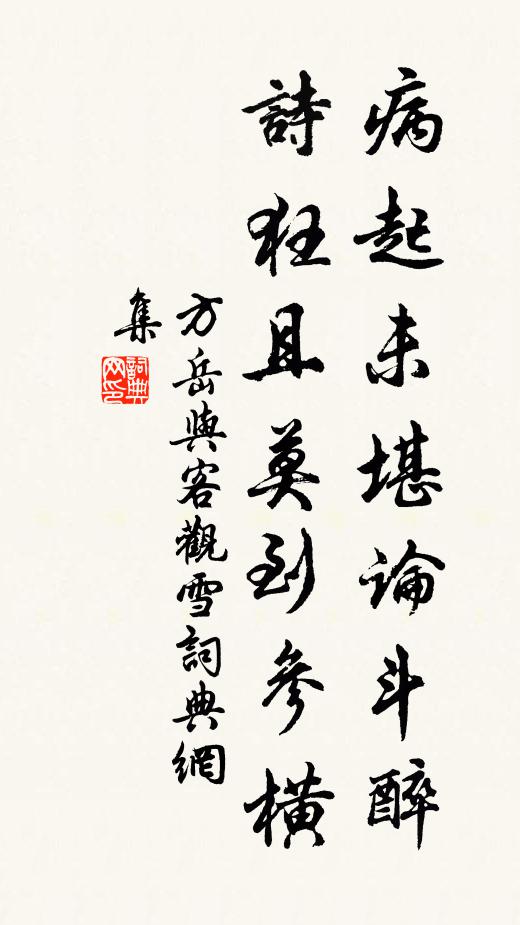 病起未堪論斗醉
詩狂且莫到參橫
方岳與客觀雪詞典網
集
詞典网印